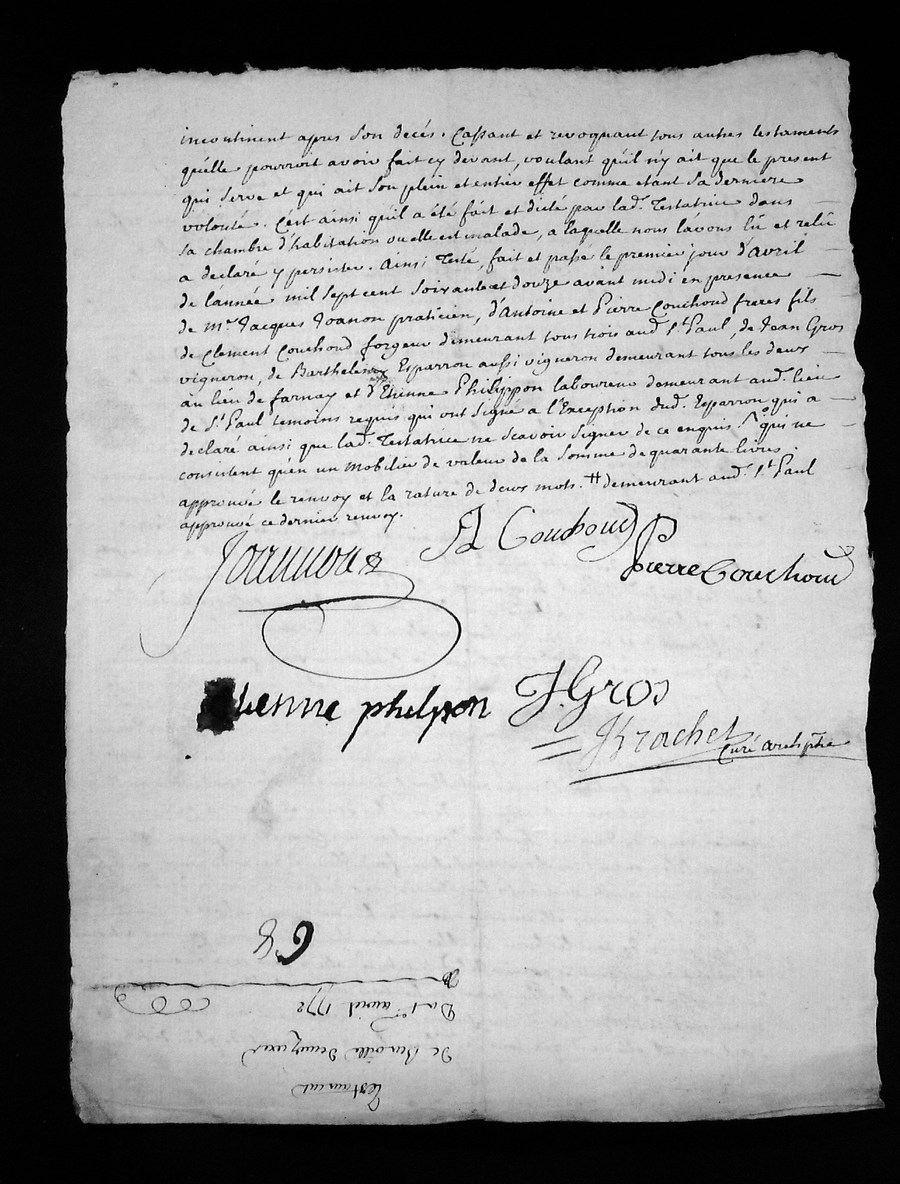 incontinent apres son decés. Cassant et revoquant tous autres testaments
qu'elle pourroit avoir fait cy devant, voulant qu'il n'y ait que le present
qui serve et qui ait son plein et entier effet comme etant sa derniere
volonté. C'est ainsi qu'il a été fait et dicté par lad. Testatrice dans
sa chambre d'habitation ou elle est malade, a laquelle nous l'avons lû et relû
a declaré y persister. Ainsi Testé, fait et passé le premier jour d'avril
de l'année mil sept cent soixante et douze avant midi en presence
de Mre Jacques Joanon praticien, d'Antoine et Pierre Couchoud freres fils
de Clement Couchoud forgeur demeurant tous trois aud. St. Paul, de Jean Gros
vigneron, de Barthelemy Esparron aussi vigneron demeurant tous les deux
au lieu de farnay et d'Etienne Philippon laboureur demeurant aud. lieu
de St. Paul temoins requis qui ont signé a l'Exception dud. Esparron qui a
declaré ainsi que lad. Testatrice ne scavoir signer de ce enquis. qui ne
consistent qu'en un mobilier de valeur de la somme de quarante livres
approuvée le renvoy et la rature de deux mots. # demeurant aud. St. Paul
approuvé ce dernier renvoy.
Joannon
A Couchoud
Pierre Couchoud
etienne philppon
J. Gros
Brachet
Curé archiptre
Testament
De Benoitte
Du 1er avril 1772